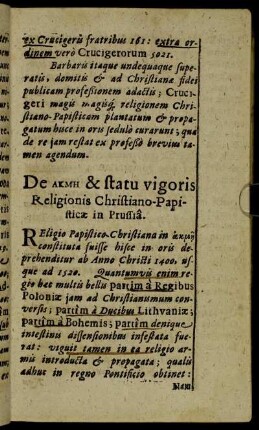 ex Crucigeris fratribus 161: extra or-
dinem verò Crucigerorum 5021.
Barbaris itaque undequaque supe-
ratis, domitis & ad Christianæ fidei
publicam professionem adactis; Cruci-
geri magis magisq; religionem Chri-
stiano-Papisticam plantatum & propa-
gatum huce in oris sedulò curarunt; qua
de re jam restat ex professo brevius ta-
men agendum.
De ΑΚΜΗ & statu vigoris
Religionis Christiano-Papi-
sticæ in Prussiâ.
REligio Papistico-Christiana in ἀκμῇ
constituta fuisse hisce in oris de-
prehenditur ab Anno Christi 1400. us-
que ad 1520. Quantumvis enim re-
gio hæc multis bellis partim à Regibus
Poloniæ jam ad Christianismum con-
versis; partim à Ducibus Lithvaniæ;
partim à Bohemis; partim denique
intestinis dissensionibus infestata fue-
rat: viguit tamen in ea religio ar-
mis introducta & propagata; qualis
adhuc in regno Pontificio obtinet: